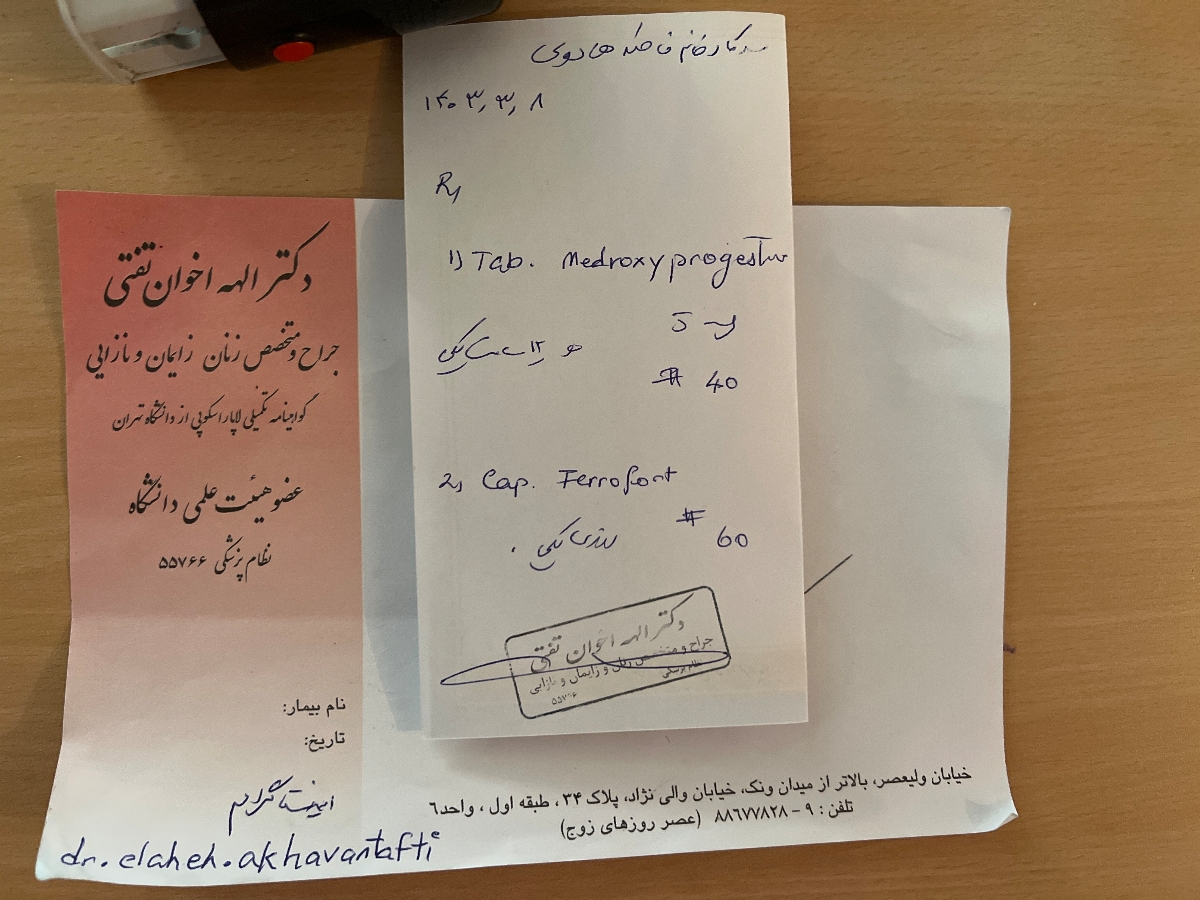 سرکار خانم فاطمه هادوی
۱۴۰۳,۳,۸
Rx
1) Tab. Medroxyprogestr
5 mg
هر ۱۲ ساعت یکی
# 40
2) Cap. Ferrofort
# 60
روزی یکی .
دکتر الهه اخوان تفتی
جراح و متخصص زنان و زایمان و نازایی
نظام پزشکی
۵۵۷۶۶
دکتر الهه اخوان تفتی
جراح و متخصص زنان زایمان و نازایی
گواهینامه تکمیلی لاپاراسکوپی از دانشگاه تهران
عضو هیئت علمی دانشگاه
نظام پزشکی ۵۵۷۶۶
نام بیمار:
تاریخ:
اینستاگرام
dr.elaheh.akhavantafti
خیابان ولیعصر، بالاتر از میدان ونک، خیابان والی نژاد، پلاک ۳۴ ، طبقه اول ، واحد۶
تلفن : ۹ - ۸۸۶۷۷۸۲۸ (عصر روزهای زوج)